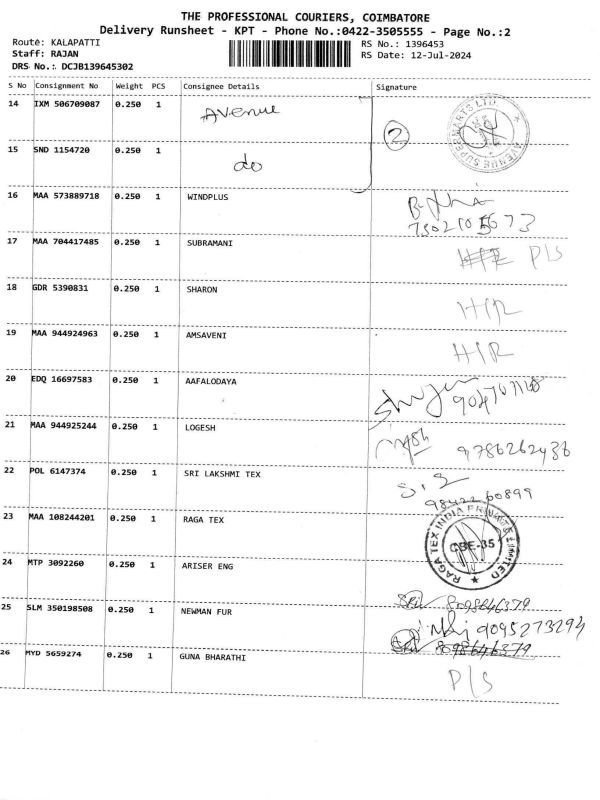 THE PROFESSIONAL COURIERS, COIMBATORE
Delivery Runsheet - KPT - Phone No.:0422-3505555 - Page No.:2
Route: KALAPATTI
RS No.: 1396453
Staff: RAJAN
RS Date: 12-Jul-2024
DRS No.: DCJB139645302
S No Consignment No Weight PCS Consignee Details Signature
14 IXM 506709087 0.250 1 Avenue
2
AVENUE SUPERMARTS LTD.
15 SND 1154720 0.250 1 do
16 MAA 573889718 0.250 1 WINDPLUS
17 MAA 704417485 0.250 1 SUBRAMANI P/S
18 GDR 5390831 0.250 1 SHARON H/R
19 MAA 944924963 0.250 1 AMSAVENI H/R
20 EDQ 16697583 0.250 1 AAFALODAYA
21 MAA 944925244 0.250 1 LOGESH 9786262436
22 POL 6147374 0.250 1 SRI LAKSHMI TEX S.S
98422 60899
23 MAA 108244201 0.250 1 RAGA TEX
RAGA TEX INDIA PRIVATE LIMITED
CBE-35
24 MTP 3092260 0.250 1 ARISER ENG
8098646379
25 SLM 350198508 0.250 1 NEWMAN FUR 9095273294
8098646379
26 MYD 5659274 0.250 1 GUNA BHARATHI P/S